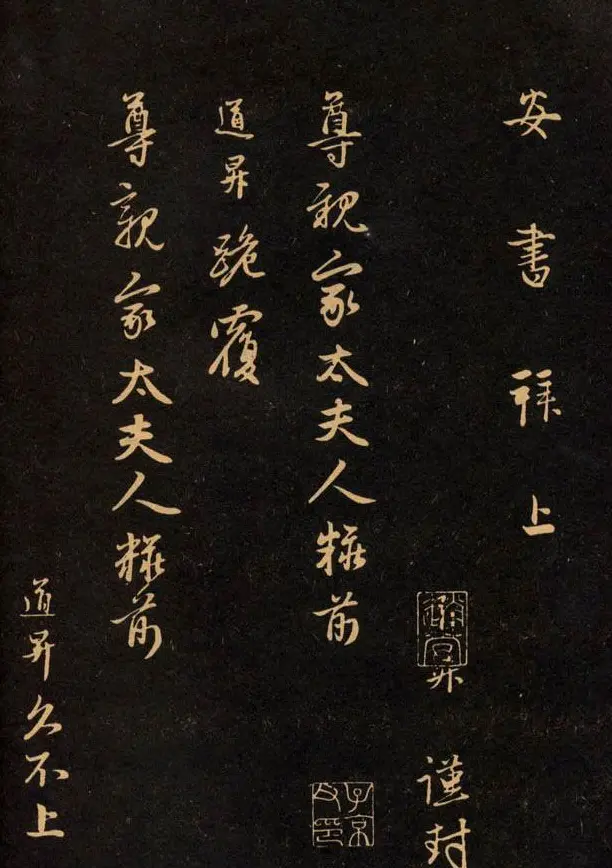 安書拜上
尊親家太夫人粧前
道昇跪覆
尊親家太夫人粧前
道昇久不上
昇謹封